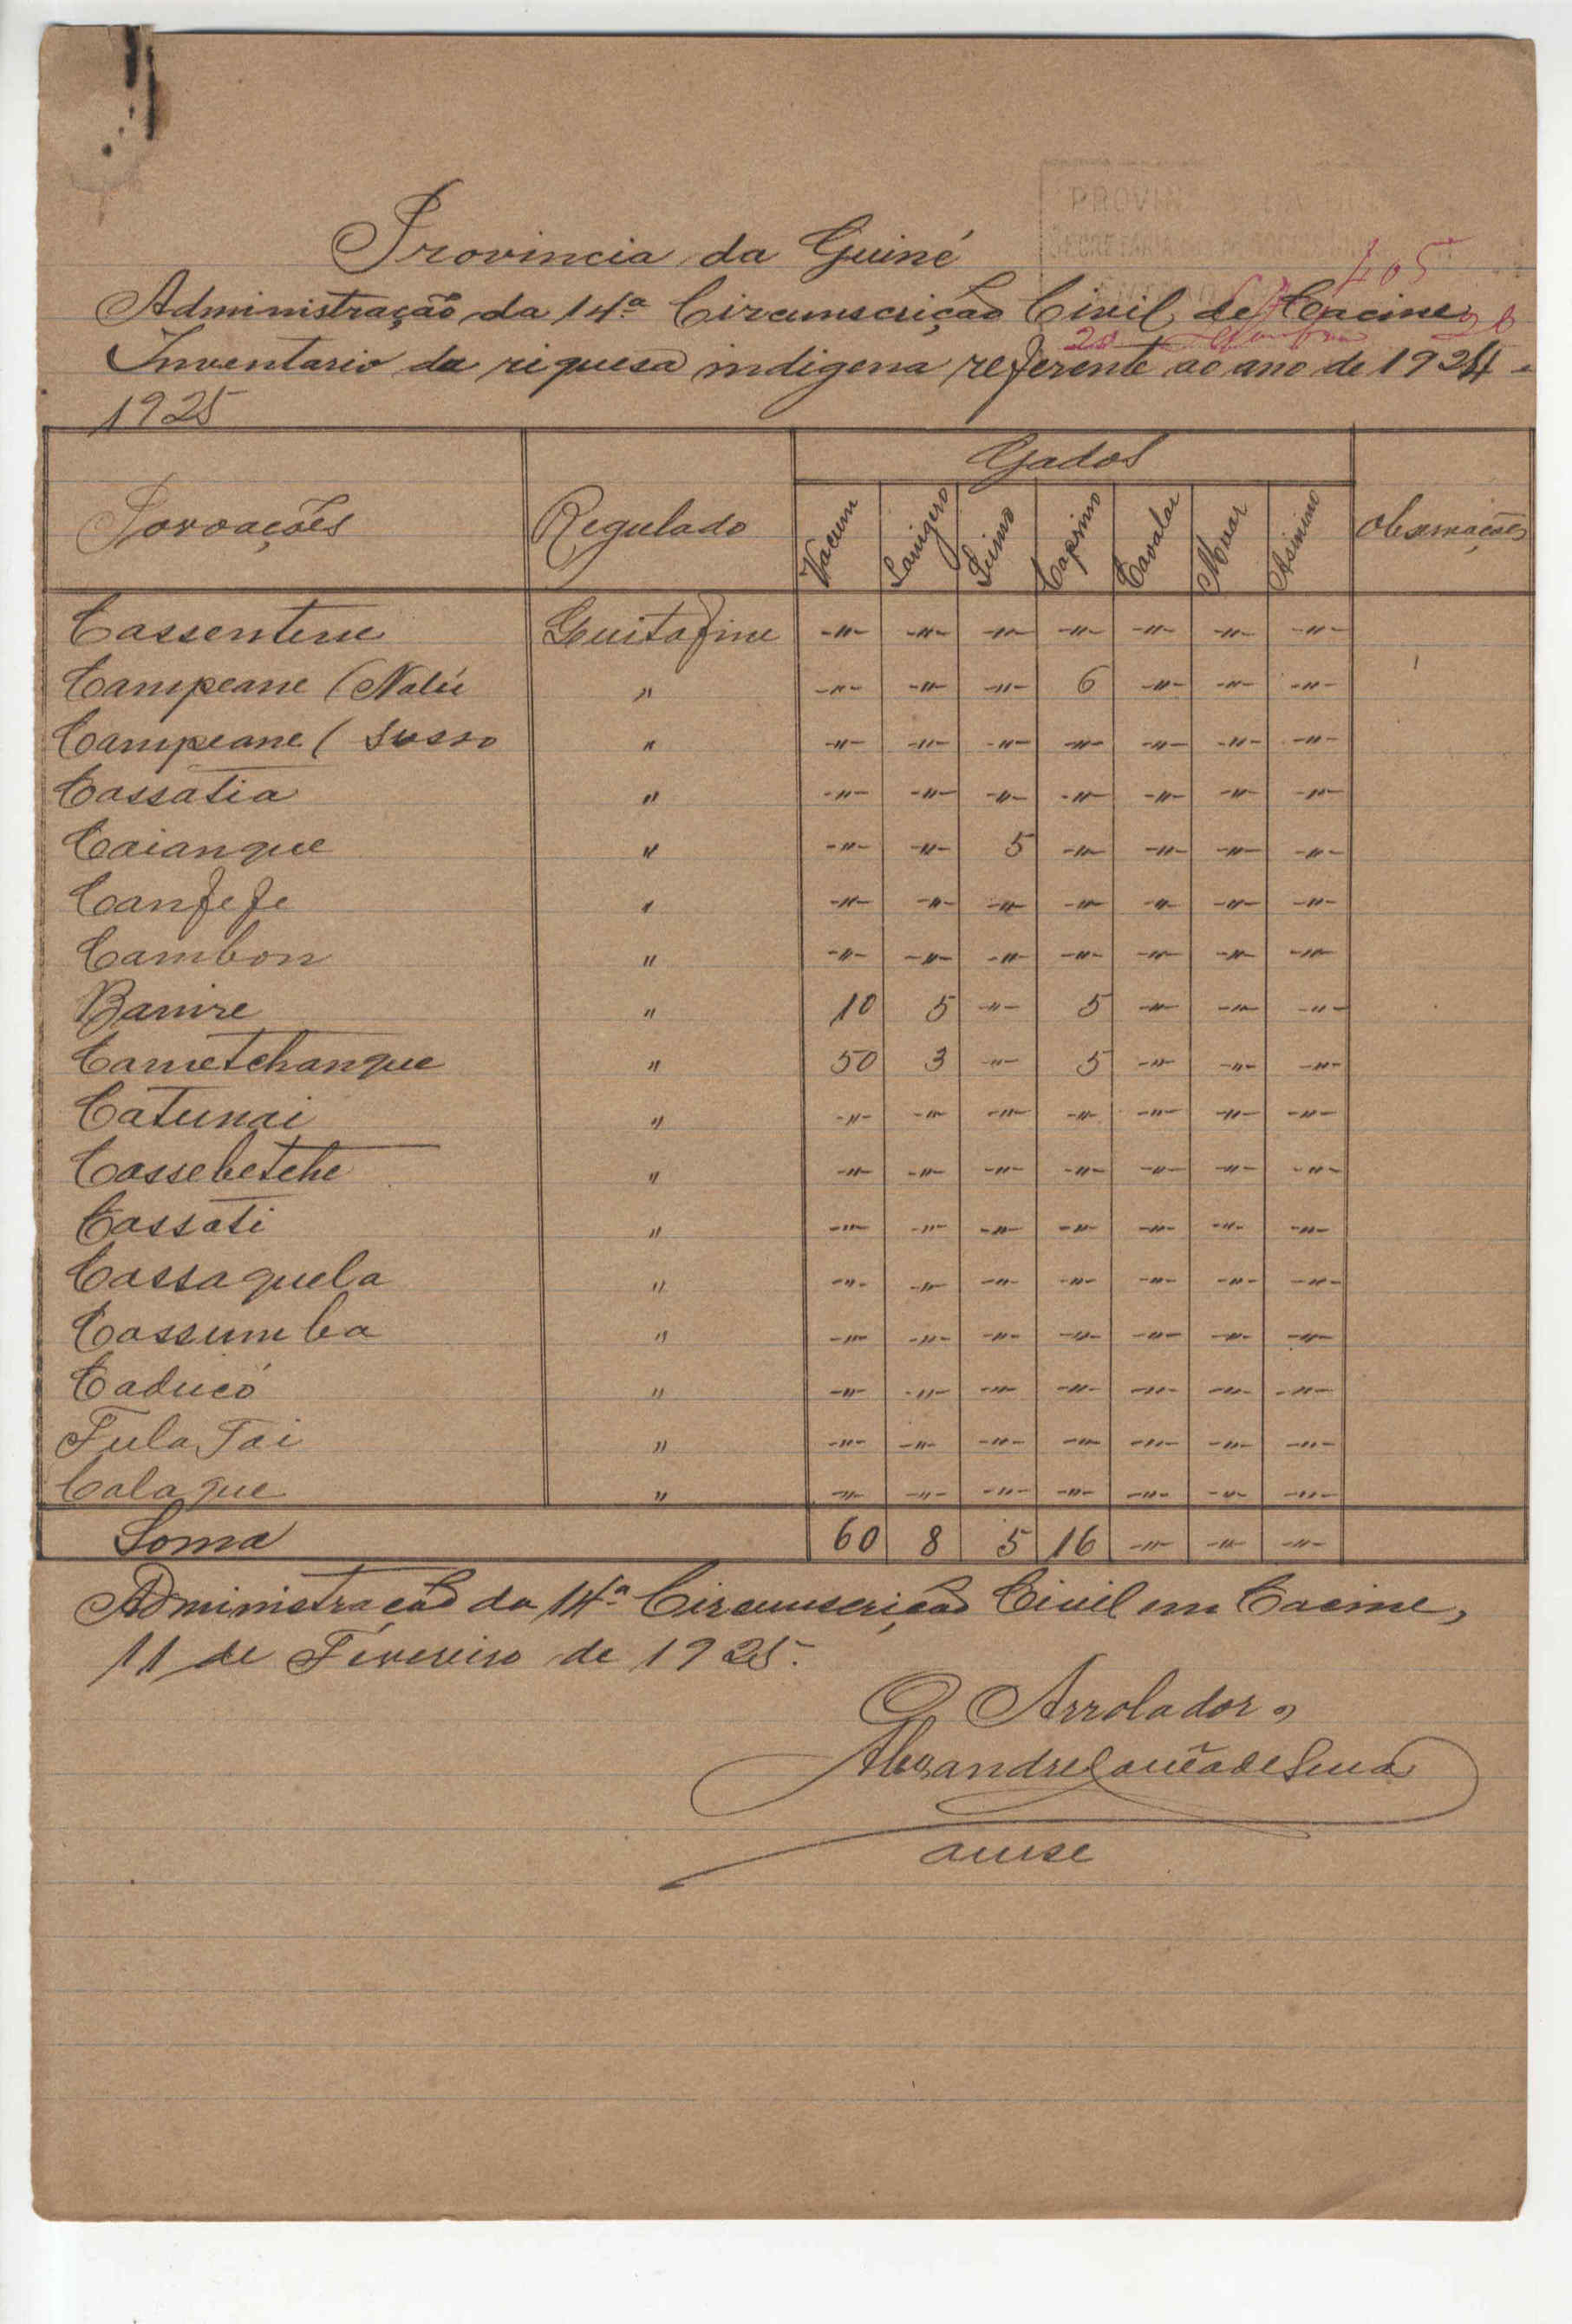 PROVIN
405
Provincia da Guiné
Administração da 14.ª Circunscrição Civil, de Cacine
Inventario da riquesa indigena referente ao ano de 1924 -
1925
Povoações Regulado Gados Observações
Vacum Lanigero Suino Caprino Cavalar Muar Asinino
Cassentem Guitafine -"- -"- -"- -"- -"- -"- -"-
Campeane (Nalú " -"- -"- -"- 6 -"- -"- -"-
Campeane ( Susso " -"- -"- -"- -"- -"- -"- -"-
Cassatia " -"- -"- -"- -"- -"- -"- -"-
Caianque " -"- -"- 5 -"- -"- -"- -"-
Canfefe " -"- -"- -"- -"- -"- -"- -"-
Cambon " -"- -"- -"- -"- -"- -"- -"-
Banire " 10 5 -"- 5 -"- -"- -"-
Cametchanque " 50 3 -"- 5 -"- -"- -"-
Catunai " -"- -"- -"- -"- -"- -"- -"-
Cassebetche " -"- -"- -"- -"- -"- -"- -"-
Cassati " -"- -"- -"- -"- -"- -"- -"-
Cassaquela " -"- -"- -"- -"- -"- -"- -"-
Cassumba " -"- -"- -"- -"- -"- -"- -"-
Caducó " -"- -"- -"- -"- -"- -"- -"-
Fula Tai " -"- -"- -"- -"- -"- -"- -"-
Calaque " -"- -"- -"- -"- -"- -"- -"-
Soma 60 8 5 16 -"- -"- -"-
Administração da 14.ª Circunscrição Civil em Cacine,
11 de Fevereiro de 1925.
O Arrolador,
Alexandre